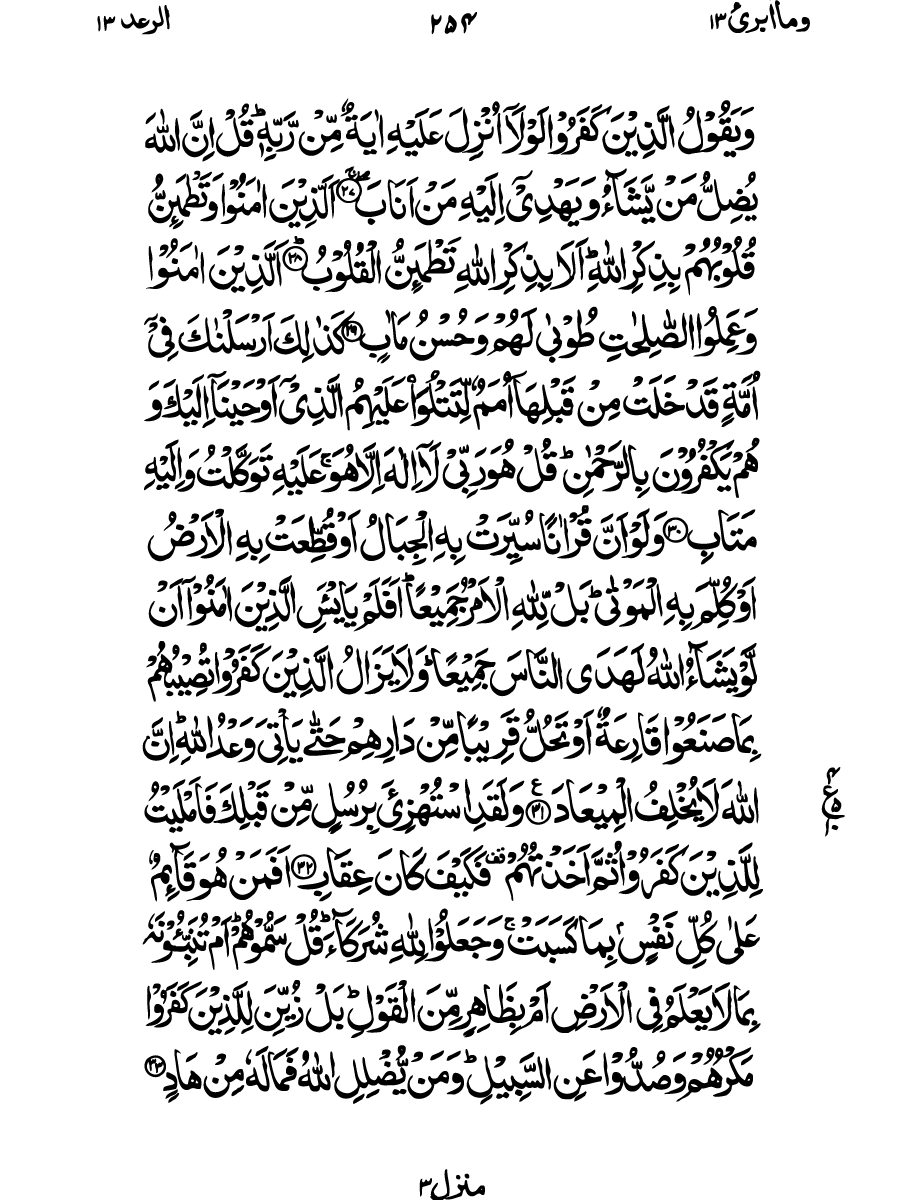 وماابرئ ١٣ ٢٥٤ الرعد ١٣
وَيَقُوْلُ الَّذِيْنَ كَفَرُوْا لَوْلَاۤ اُنْزِلَ عَلَيْهِ اٰيَةٌ مِّنْ رَّبِّهٖؕ قُلْ اِنَّ اللّٰهَ
يُضِلُّ مَنْ يَّشَآءُ وَيَهْدِىْۤ اِلَيْهِ مَنْ اَنَابَۖۚ ﴿۲۷﴾ اَلَّذِيْنَ اٰمَنُوْا وَتَطْمَئِنُّ
قُلُوْبُهُمْ بِذِكْرِ اللّٰهِؕ اَلَا بِذِكْرِ اللّٰهِ تَطْمَئِنُّ الْقُلُوْبُؕ ﴿۲۸﴾ اَلَّذِيْنَ اٰمَنُوْا
وَعَمِلُوا الصّٰلِحٰتِ طُوْبٰى لَهُمْ وَحُسْنُ مَاٰبٍ ﴿۲۹﴾ كَذٰلِكَ اَرْسَلْنٰكَ فِىْۤ
اُمَّةٍ قَدْ خَلَتْ مِنْ قَبْلِهَاۤ اُمَمٌ لِّتَتْلُوَا۟ عَلَيْهِمُ الَّذِىْۤ اَوْحَيْنَاۤ اِلَيْكَ وَ
هُمْ يَكْفُرُوْنَ بِالرَّحْمٰنِؕ قُلْ هُوَ رَبِّىْ لَاۤ اِلٰهَ اِلَّا هُوَۚ عَلَيْهِ تَوَكَّلْتُ وَاِلَيْهِ
مَتَابِ ﴿۳۰﴾ وَلَوْ اَنَّ قُرْاٰنًا سُيِّرَتْ بِهِ الْجِبَالُ اَوْ قُطِّعَتْ بِهِ الْاَرْضُ
اَوْ كُلِّمَ بِهِ الْمَوْتٰىؕ بَلْ لِّلّٰهِ الْاَمْرُ جَمِيْعًاؕ اَفَلَمْ يَايْئَسِ الَّذِيْنَ اٰمَنُوْۤا اَنْ
لَّوْ يَشَآءُ اللّٰهُ لَهَدَى النَّاسَ جَمِيْعًاؕ وَلَا يَزَالُ الَّذِيْنَ كَفَرُوْا تُصِيْبُهُمْ
بِمَا صَنَعُوْا قَارِعَةٌ اَوْ تَحُلُّ قَرِيْبًا مِّنْ دَارِهِمْ حَتّٰى يَاْتِىَ وَعْدُ اللّٰهِؕ اِنَّ
اللّٰهَ لَا يُخْلِفُ الْمِيْعَادَ ﴿۳۱﴾ ع وَلَقَدِ اسْتُهْزِئَ بِرُسُلٍ مِّنْ قَبْلِكَ فَاَمْلَيْتُ
لِلَّذِيْنَ كَفَرُوْا ثُمَّ اَخَذْتُهُمْ قف فَكَيْفَ كَانَ عِقَابِ ﴿۳۲﴾ اَفَمَنْ هُوَ قَآئِمٌ
عَلٰى كُلِّ نَفْسٍۭ بِمَا كَسَبَتْۚ وَجَعَلُوْا لِلّٰهِ شُرَكَآءَؕ قُلْ سَمُّوْهُمْؕ اَمْ تُنَبِّئُوْنَهٗ
بِمَا لَا يَعْلَمُ فِى الْاَرْضِ اَمْ بِظَاهِرٍ مِّنَ الْقَوْلِؕ بَلْ زُيِّنَ لِلَّذِيْنَ كَفَرُوْا
مَكْرُهُمْ وَصُدُّوْا عَنِ السَّبِيْلِؕ وَمَنْ يُّضْلِلِ اللّٰهُ فَمَا لَهٗ مِنْ هَادٍ ﴿۳۳﴾
منزل ۳